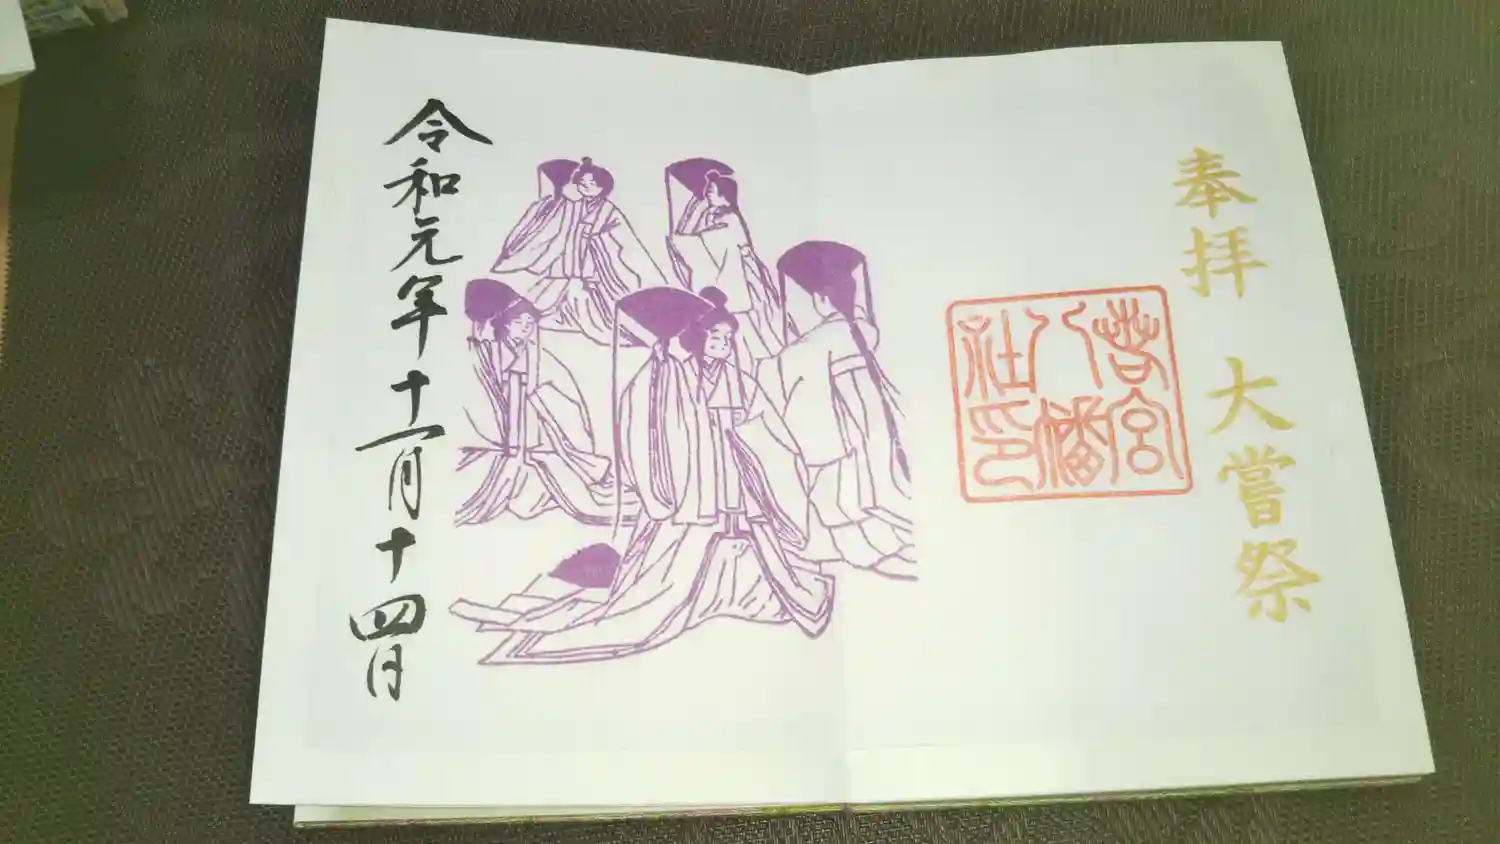 奉拝 大嘗祭
若宮
八幡
社印
令和元年十一月十四日